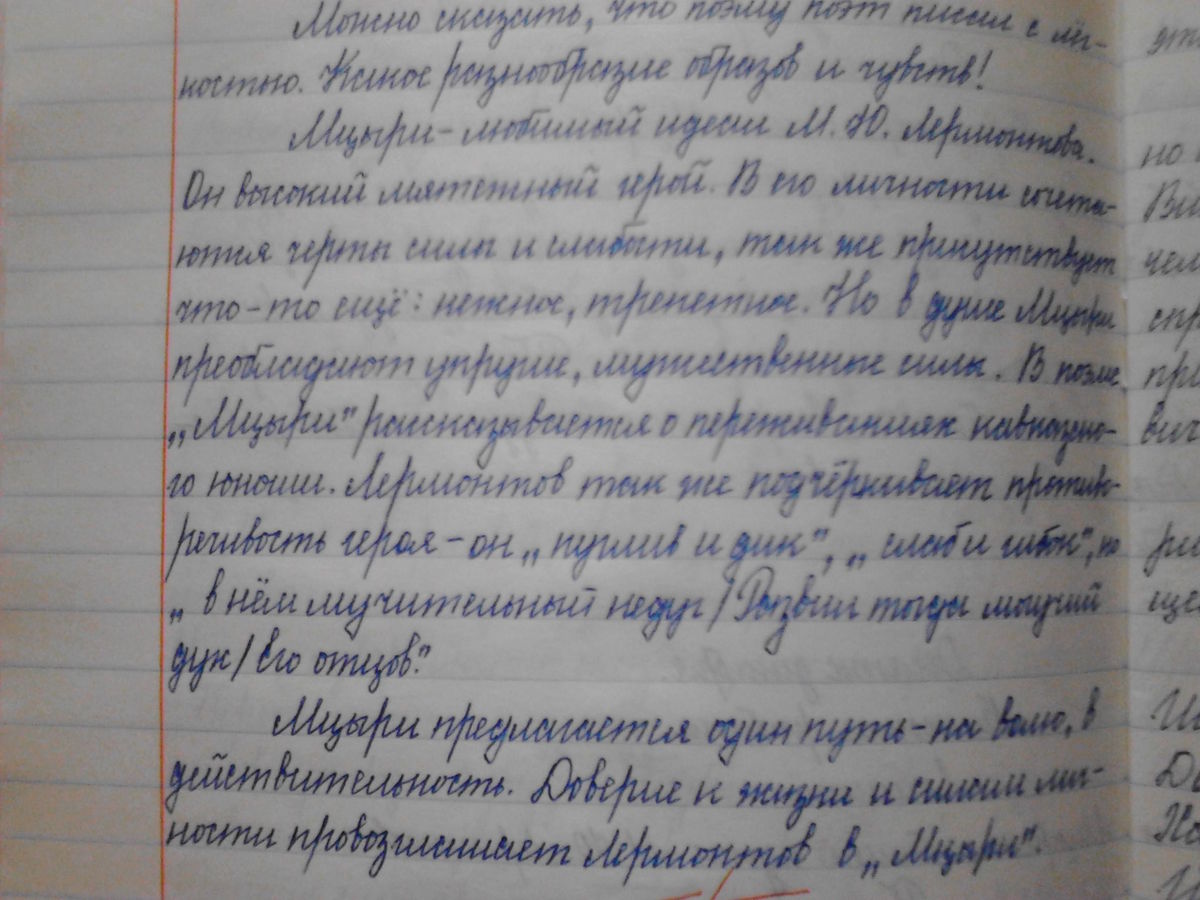 Можно сказать, что поэму поэт писал с лёг-
костью. Какое разнообразие образов и чувств!
Мцыри - любимый идеал М. Ю. Лермонтова.
Он высокий мятежный герой. В его личности сочета-
ются черты силы и слабости, так же присутствует
что-то ещё: нежное, трепетное. Но в душе Мцыри
преобладают упругие, мужественные силы. В поэме
„Мцыри" рассказывается о переживаниях кавказско-
го юноши. Лермонтов так же подчёркивает противо-
речивость героя - он „пуглив и дик", „слаб и гибок", но
„в нём мучительный недуг / Развил тогда могучий
дух / Его отцов."
Мцыри предлагается один путь - на волю, в
действительность. Доверие к жизни и силам лич-
ности провозглашает Лермонтов в „Мцыри".
но